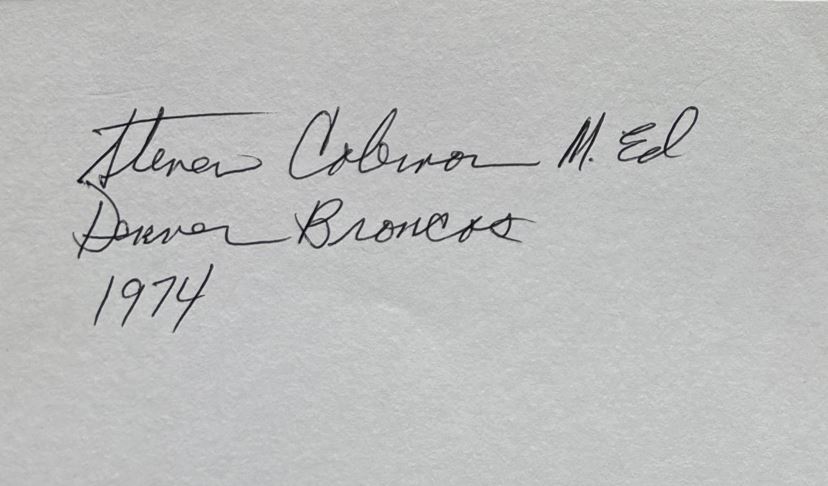 Steven Coleman M. Ed
Denver Broncos
1974